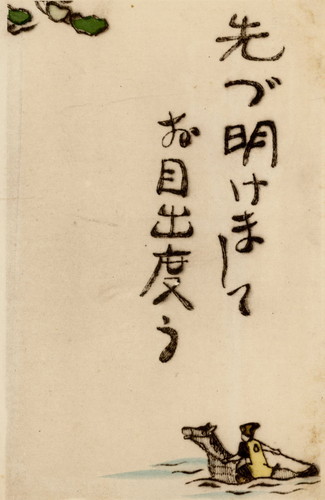 先づ明けまして
お目出度う